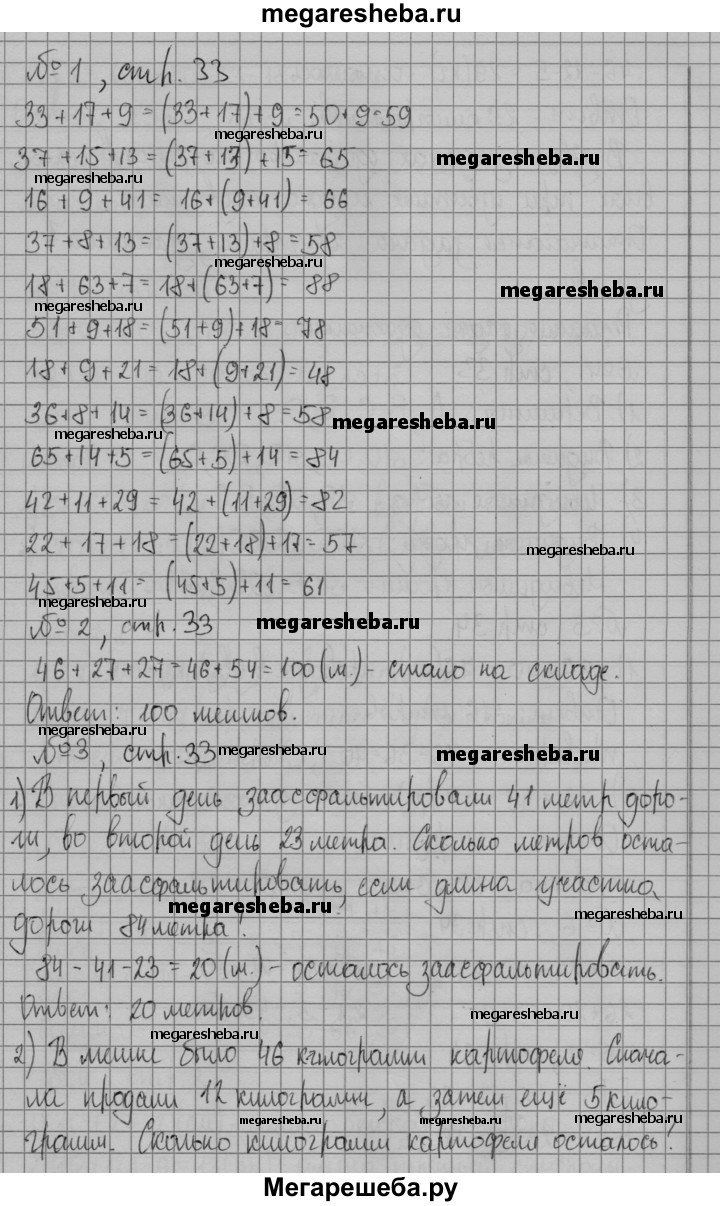 megaresheba.ru
№ 1, стр. 33
33+17+9 = (33+17)+9 = 50+9=59
megaresheba.ru
37+15+13 = (37+13)+15= 65
megaresheba.ru
megaresheba.ru
16+9+41= 16+(9+41) = 66
37+8+13= (37+13)+8=58
megaresheba.ru
18+63+7=18+(63+7)= 88
megaresheba.ru
megaresheba.ru
51+9+18=(51+9)+18= 78
18+9+21=18+(9+21)=48
36+8+14=(36+14)+8=58
megaresheba.ru
megaresheba.ru
65+14+5=(65+5)+14=84
42+11+29 = 42+(11+29)=82
22+17+18=(22+18)+17=57
megaresheba.ru
45+5+11= (45+5)+11= 61
megaresheba.ru
№ 2, стр. 33
megaresheba.ru
46+27+27=46+54=100(м.)- стало на складе.
Ответ: 100 мешков.
megaresheba.ru
№3, стр.33
megaresheba.ru
megaresheba.ru
1) В первый день заасфальтировали 41 метр доро-
ги, во второй день 23 метра. Сколько метров оста-
лось заасфальтировать, если длина участка
megaresheba.ru
megaresheba.ru
дороги 84 метра?
84-41-23=20(м.)- осталось заасфальтировать.
Ответ: 20 метров.
megaresheba.ru
megaresheba.ru
2) В мешке было 46 килограмм картофеля. Снача-
ла продали 12 килограмм, а затем ещё 5 кило-
megaresheba.ru
megaresheba.ru
megaresheba.ru
грамм. Сколько килограмм картофеля осталось?
Мегарешеба.ру